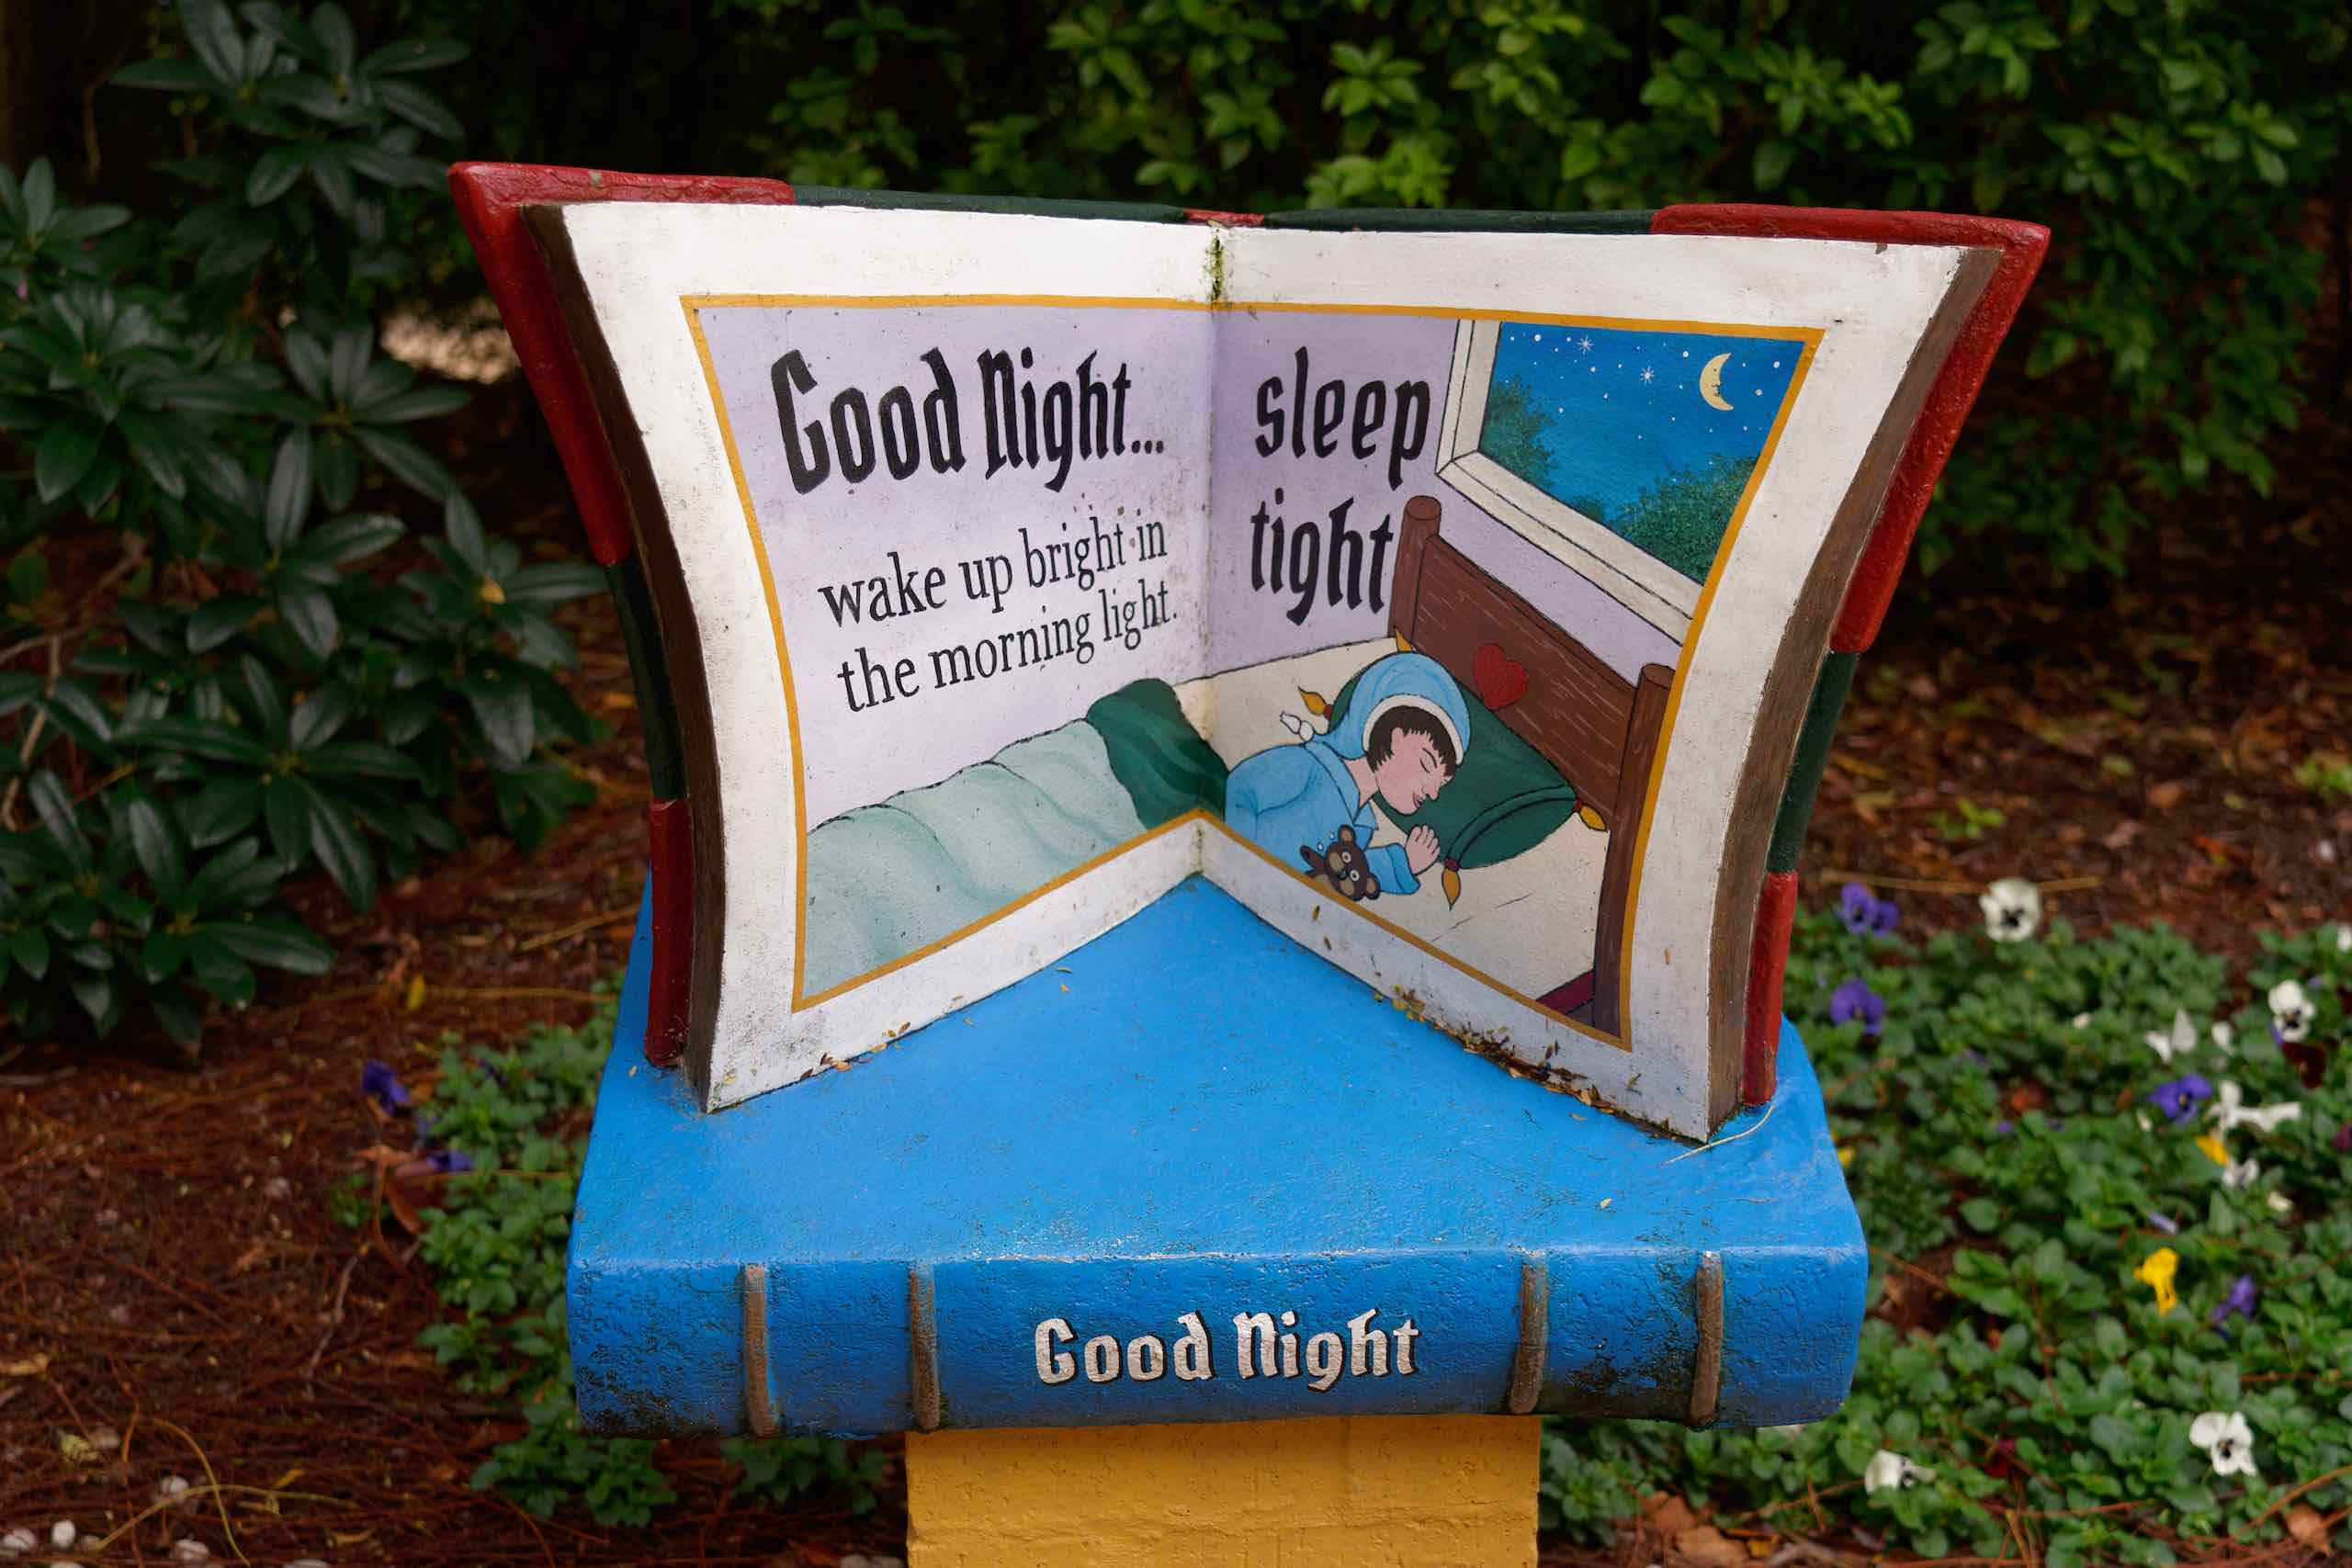 Good Night...
wake up bright in
the morning light.
sleep
tight
Good Night